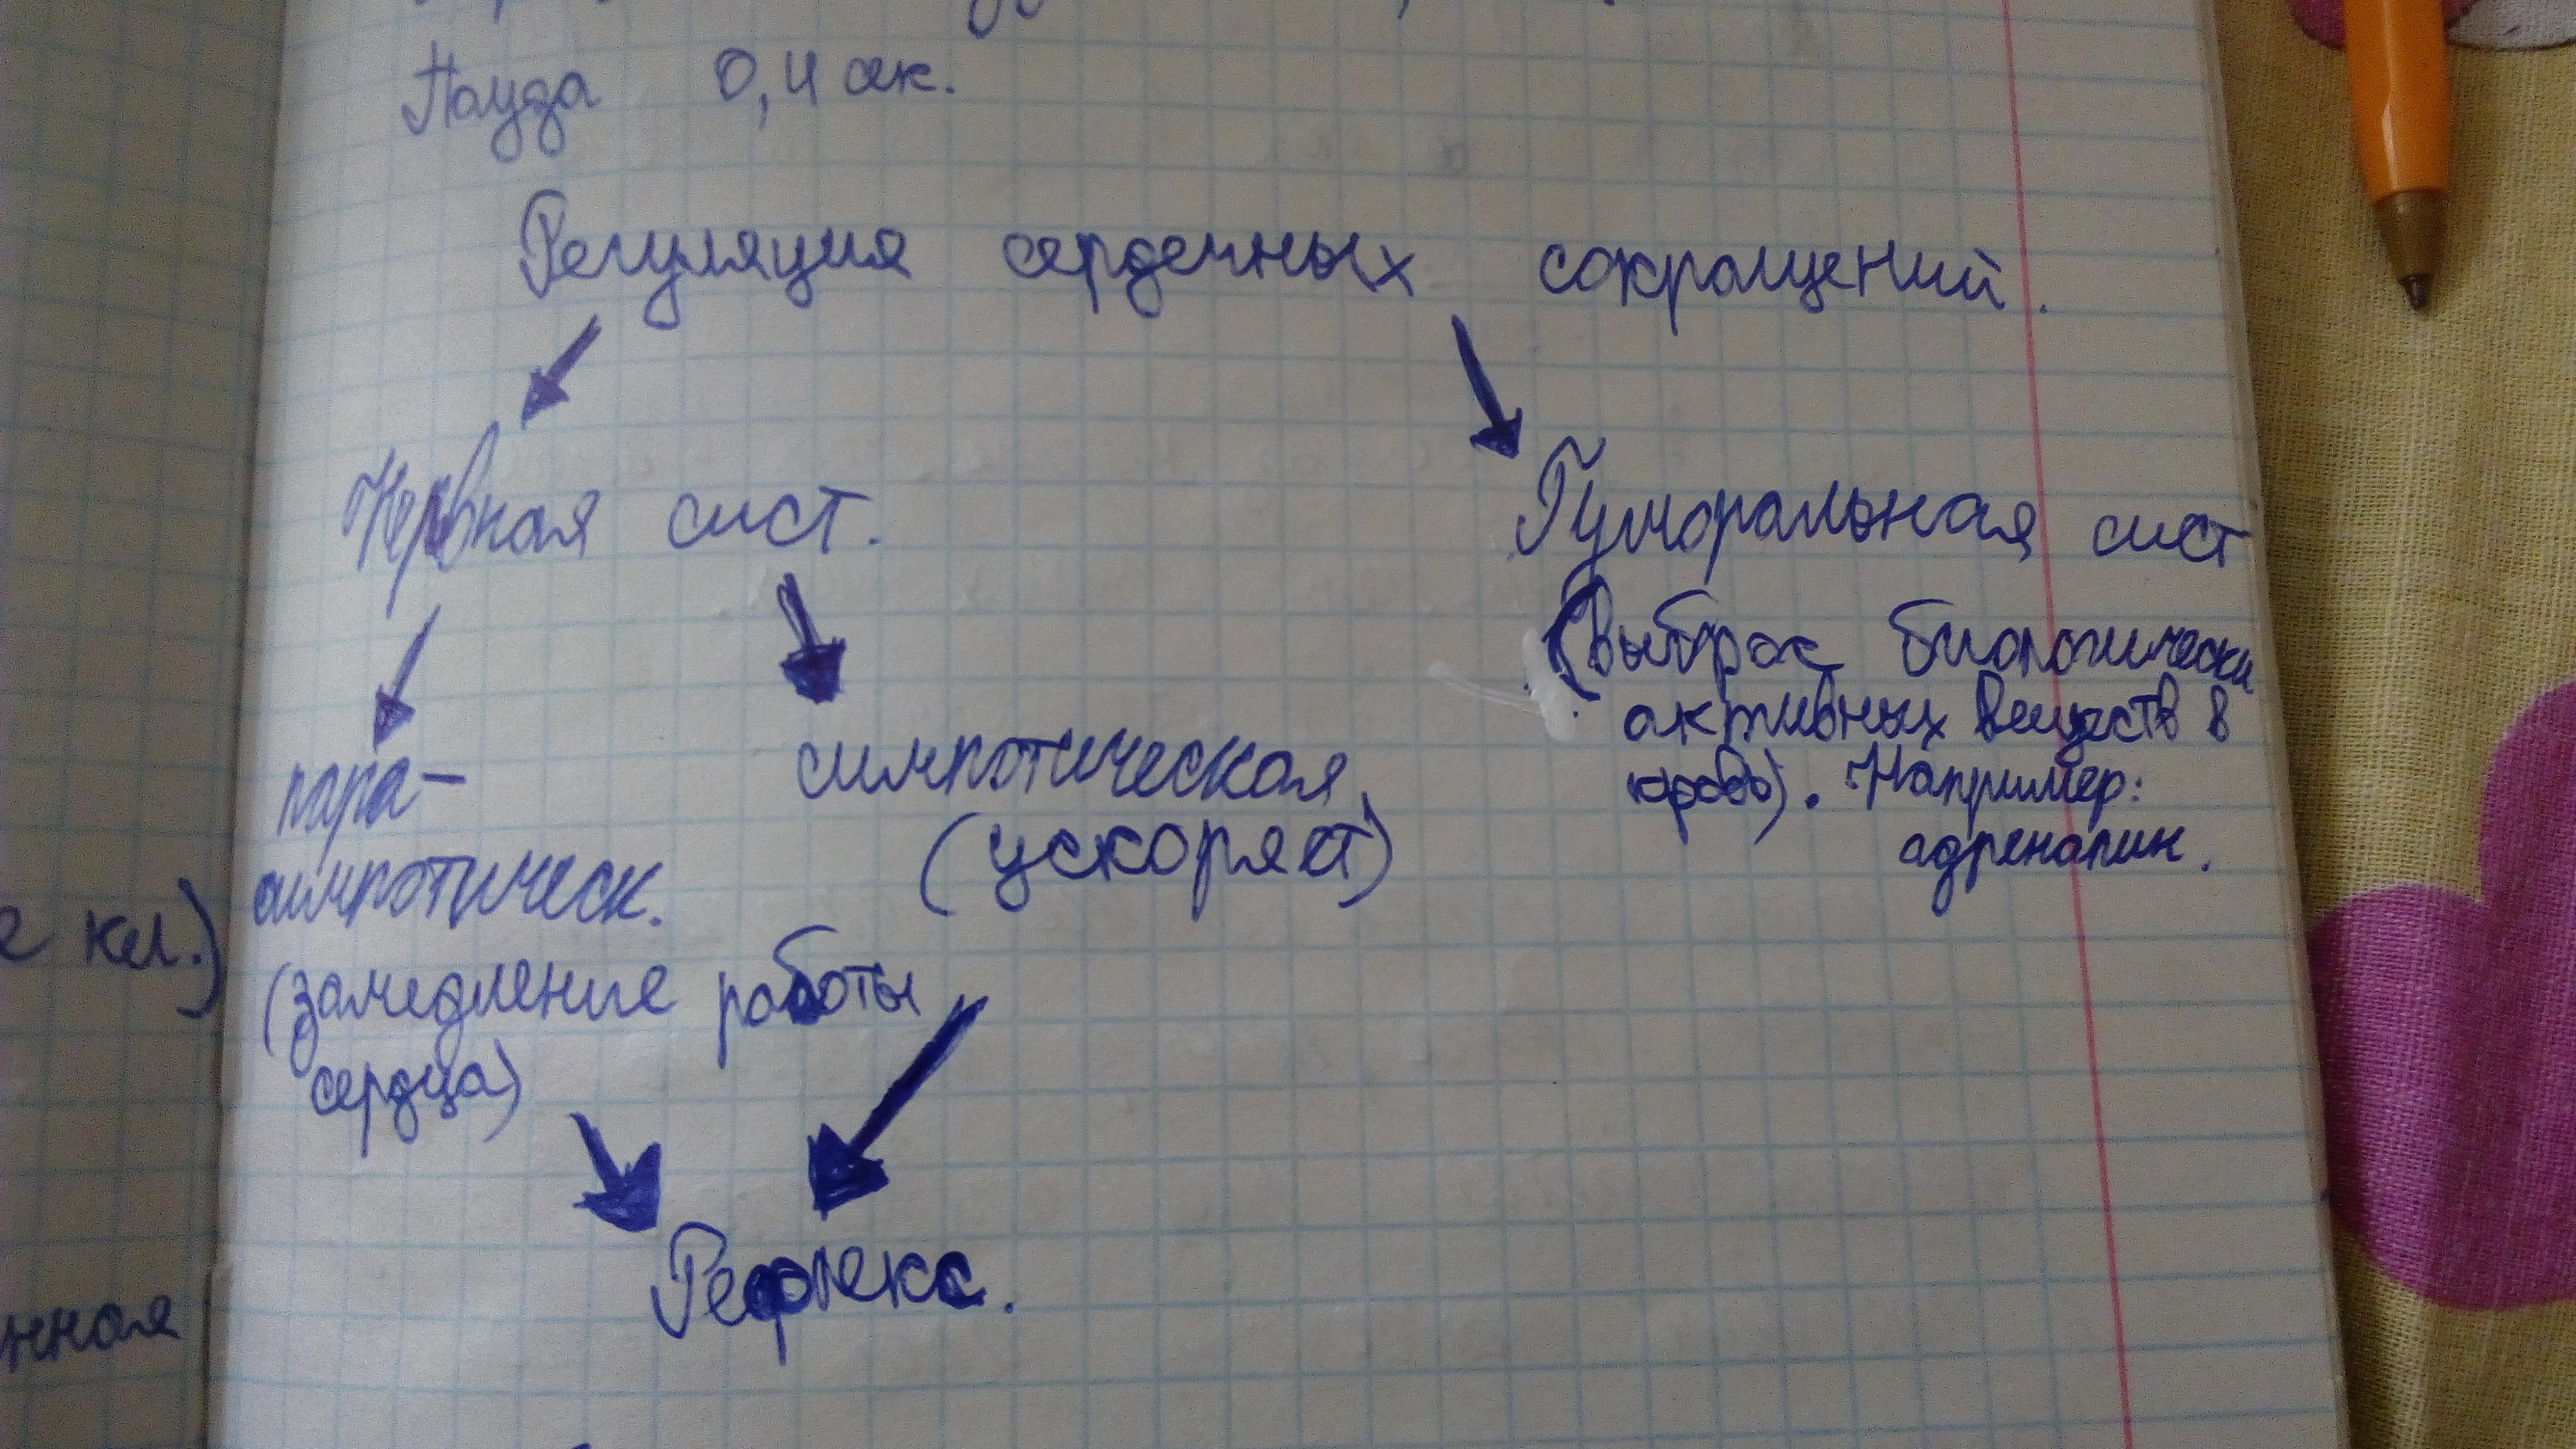 Пауза 0,4 сек.
Регуляция сердечных сокращений.
Нервная сист.
Гуморальная сист
(Выброс биологически
активных веществ в
кровь). Например:
адреналин.
пара-
симпотическ.
(замедление работы
сердца)
симпотическая
(ускоряет)
Рефлекс.
е кл.)
нная